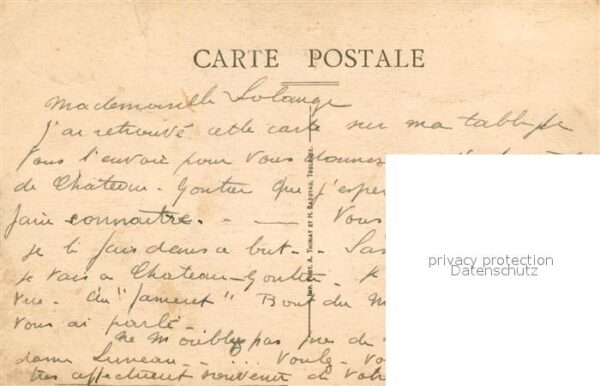 CARTE POSTALE
Mademoiselle Solange
J'ai retrouvé cette carte sur ma table je
vous l'envoie pour vous donner
de Chateau-Gontier que j'esper
faire connaître. - - — Vous
je li fais dans ce but - - Sa
je vais a Chateau-Gontier
vue - Au "fament" Bout du M
vous ai parlé -
ne m'oubliez pas pres de
dame Luneau - - ... Voule - vo
tres affectueux souvenir de votr
IMP. PHOT. A. THIRIAT ET H. BASUYAU, TOULOUSE.
privacy protection
Datenschutz